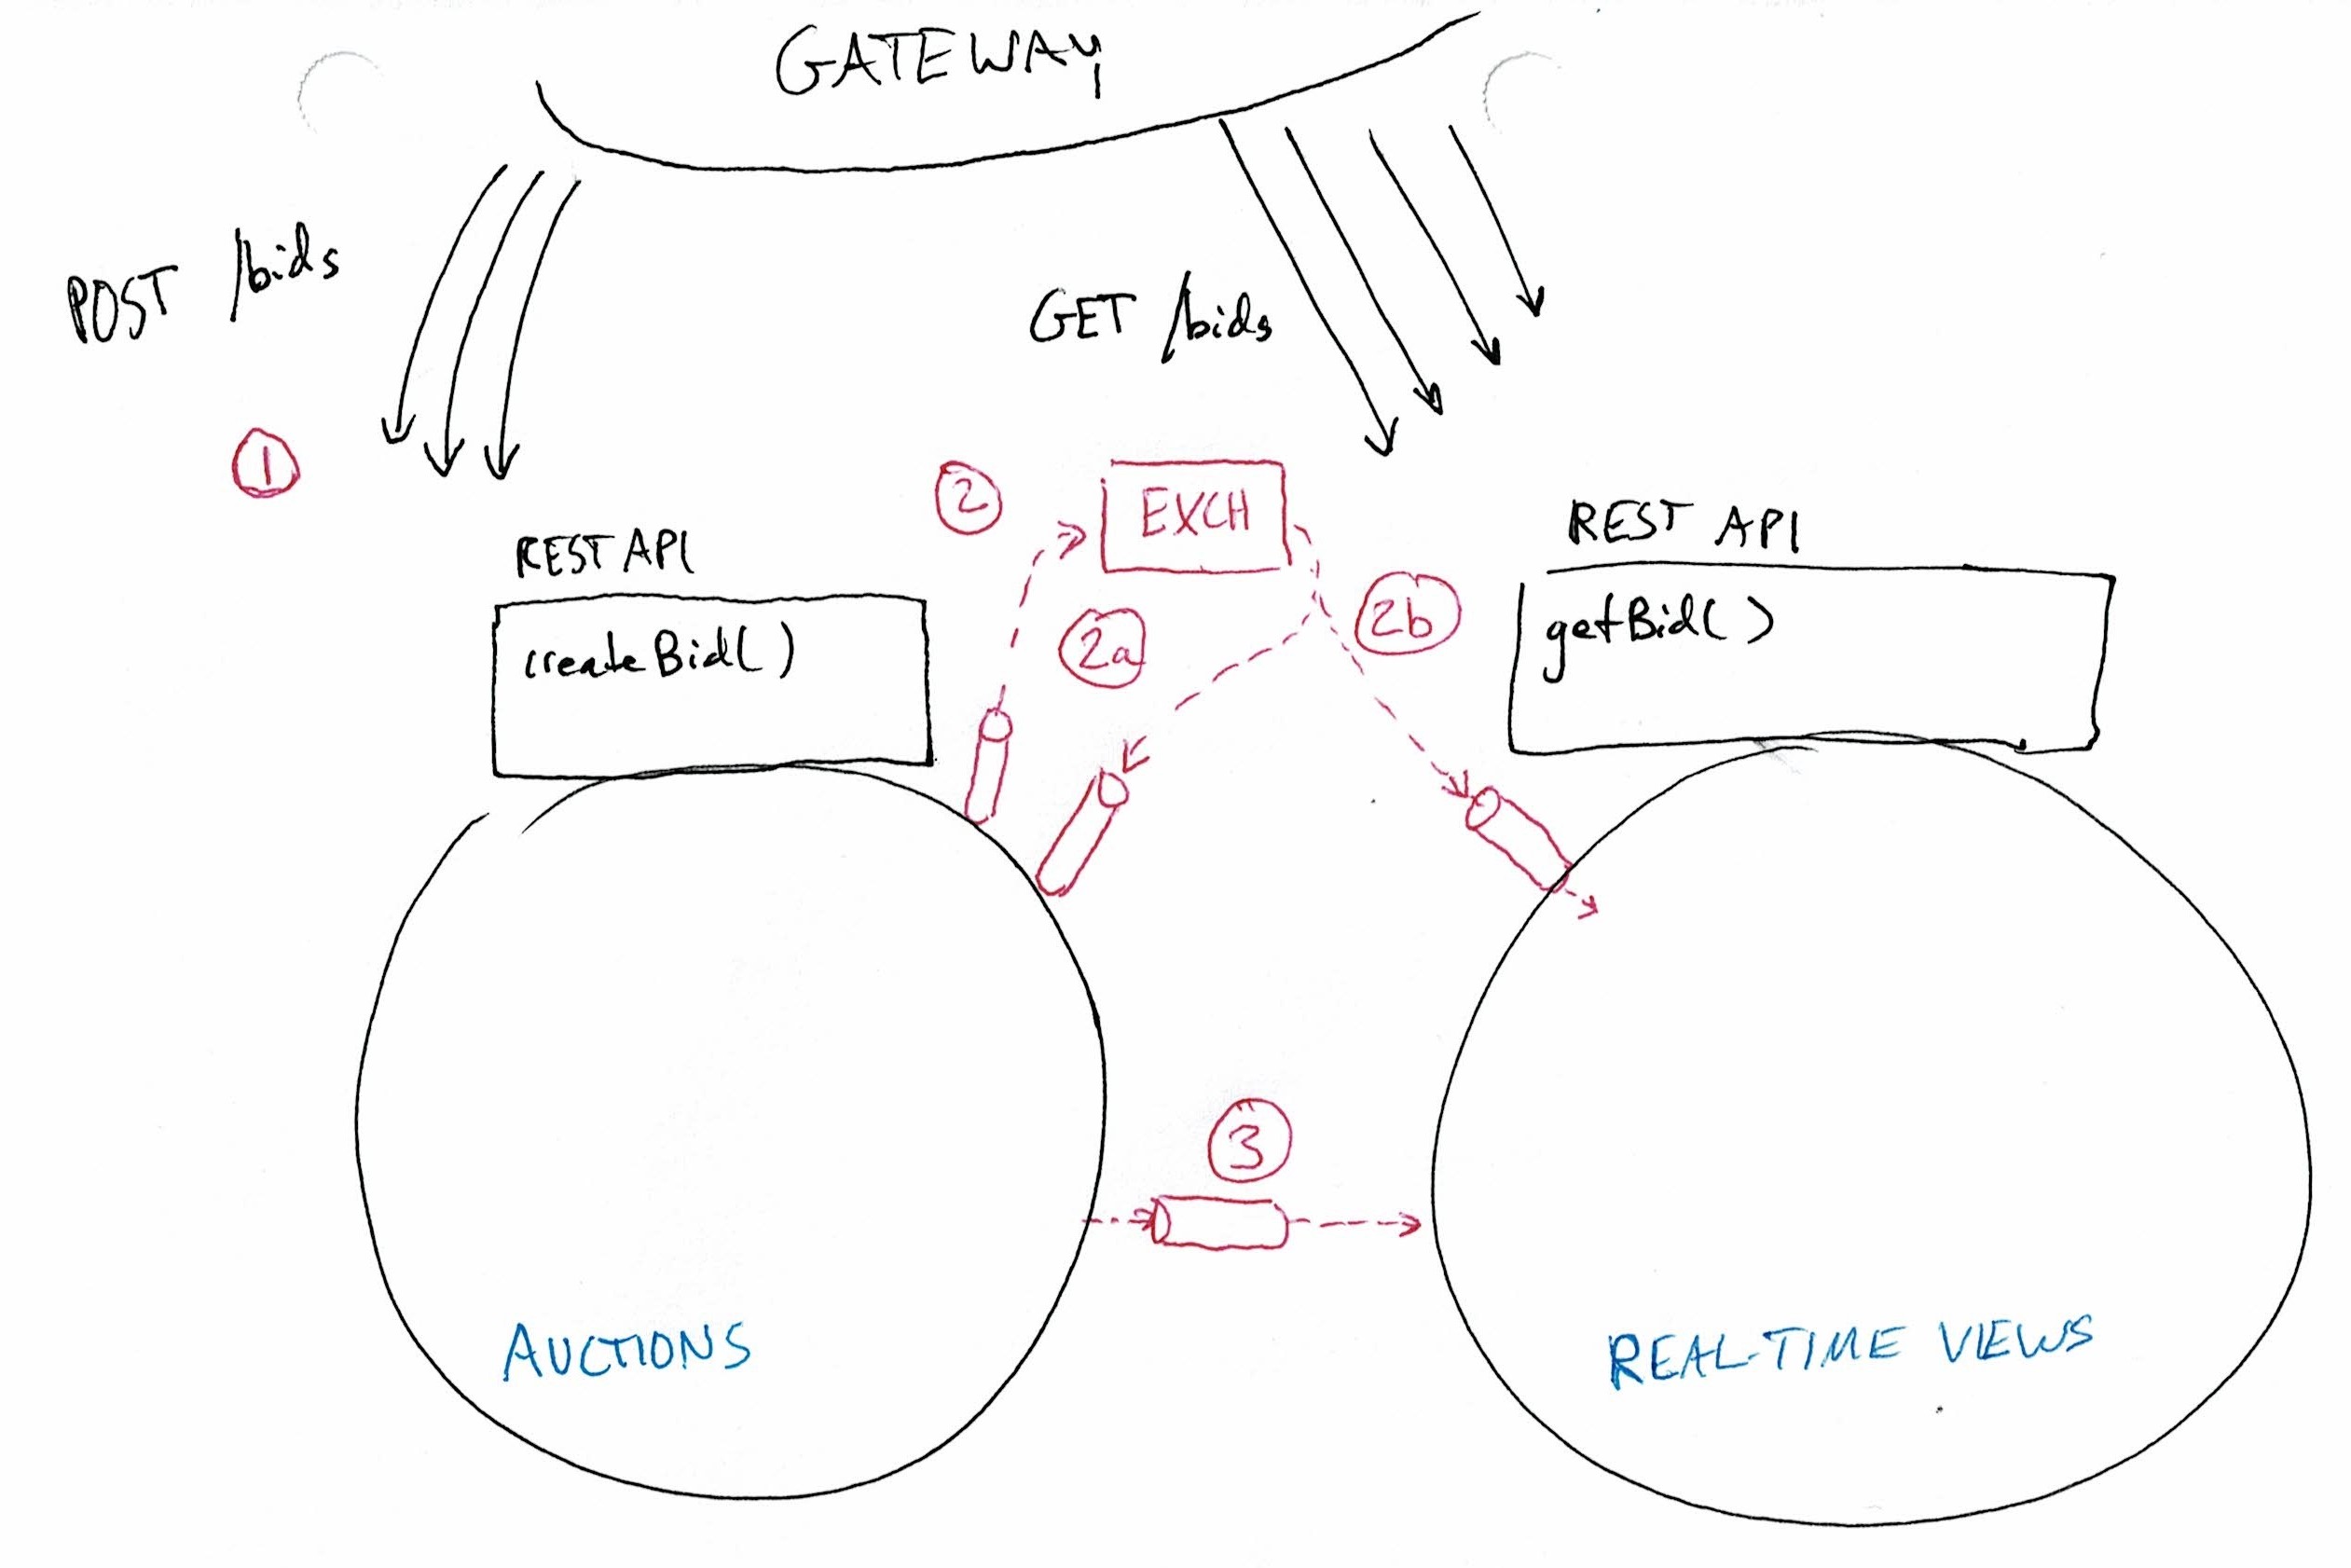 GATEWAY
POST /bids
GET /bids
1
2
EXCH
REST API
REST API
createBid()
2a
2b
getBid()
3
AUCTIONS
REAL-TIME VIEWS